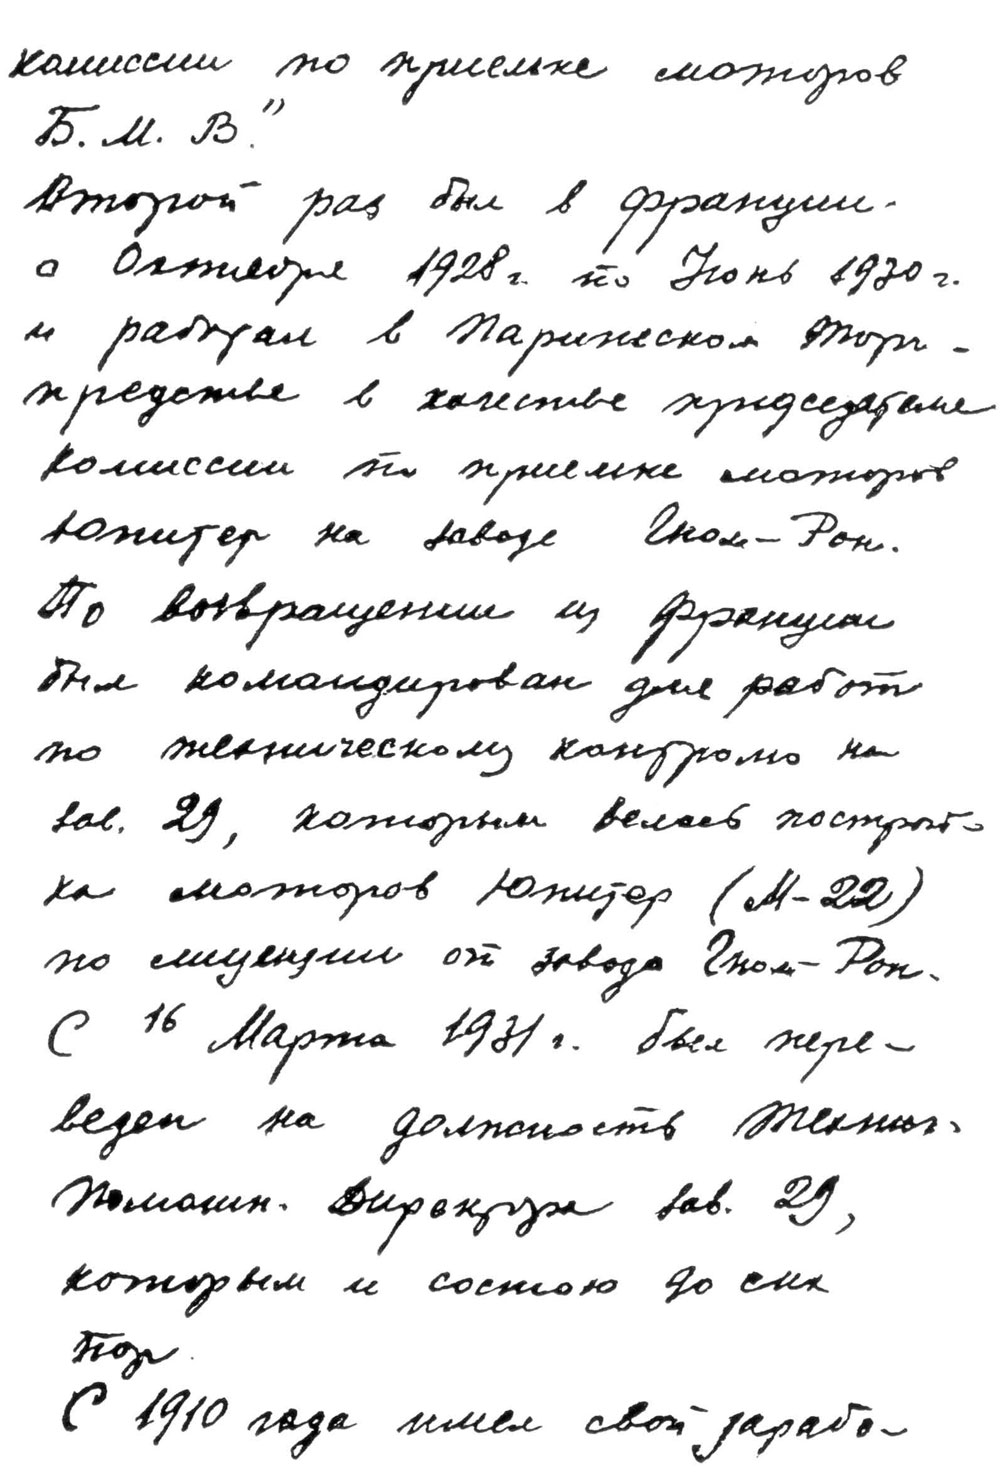 комиссии по приемке моторов
Б. М. В."
Второй раз был в Франции.
с Октября 1928 г. по Июнь 1930 г.
и работал в Парижском Торг-
предстве в качестве председателя
комиссии по приемке моторов
Юпитер на заводе Гном-Рон.
По возвращении из Франции
был командирован для работ
по техническому контролю на
зав. 29, которым велась построй-
ка моторов Юпитер (М-22)
по лицензии от завода Гном-Рон.
С 16 Марта 1931 г. был пере-
веден на должность Технич.
Помощн. Директора зав. 29,
которым и состою до сих
пор.
С 1910 года имел свой зарабо-